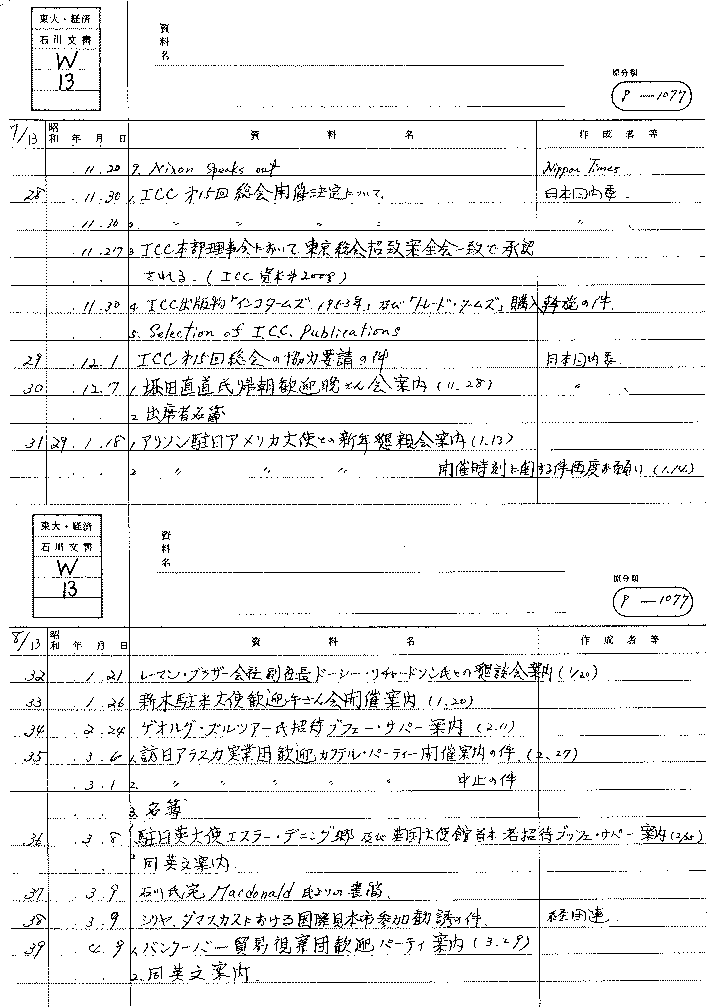 東大・経済
石川文書
W
13
資料名
原分類
P — 1077
7/13 昭和 年 月 日 資 料 名 作成者等
11.20 9. Nixon Speaks out Nippon Times
28 11.30 1. ICC 第15回総会開催決定について. 日本国内委.
11.30 2. 〃 〃 〃 〃 〃
11.27 3. ICC本部理事会において東京総会招致案全会一致で承認
される. (ICC 資料#2008)
11.30 4. ICC出版物「インコタームズ 1953年」及び「トレード・タームズ」購入斡旋の件.
5. Selection of ICC. Publications
29 12.1 ICC 第15回総会の協力要請の件 日本国内委.
30 12.7 1. 堀田直道氏帰朝歓迎晩さん会案内 (11.28) 〃
2. 出席者名簿
31 29.1.18 1. アリソン駐日アメリカ大使との新年懇親会案内 (1.13)
2. 〃 〃 〃 開催時刻に関する件再度お願い (1.14.)
東大・経済
石川文書
W
13
資料名
原分類
P — 1077
8/13 昭和 年 月 日 資 料 名 作成者等
32 1.21 レーマン・ブラザー会社副社長ドーシー・リチャードソン氏との懇談会案内 (1/20)
33 1.26 新木駐米大使歓迎午さん会開催案内 (1.20)
34 2.24 ゲオルグ・ズルツアー氏招待ブフェー・サパー案内 (2.11)
35 3.6 1. 訪日アラスカ実業団歓迎カクテル・パーティー開催案内の件. (2.27)
3.1 2. 〃 〃 〃 〃 中止の件
3. 名簿
36 3.8 1 駐日英大使エスラー・デニング郷及び英国大使館首席者招待ブッフェ・サパー案内 (2/25)
2 同英文案内.
37 3.9 石川氏宛 Macdonald 氏よりの書簡.
38 3.9 シリヤ、ダマスカスにおける国際見本市参加勧誘の件. 経団連.
39 4.9 1. バンクーバー貿易視察団歓迎パーティ案内 (3.29)
2. 同英文案内.